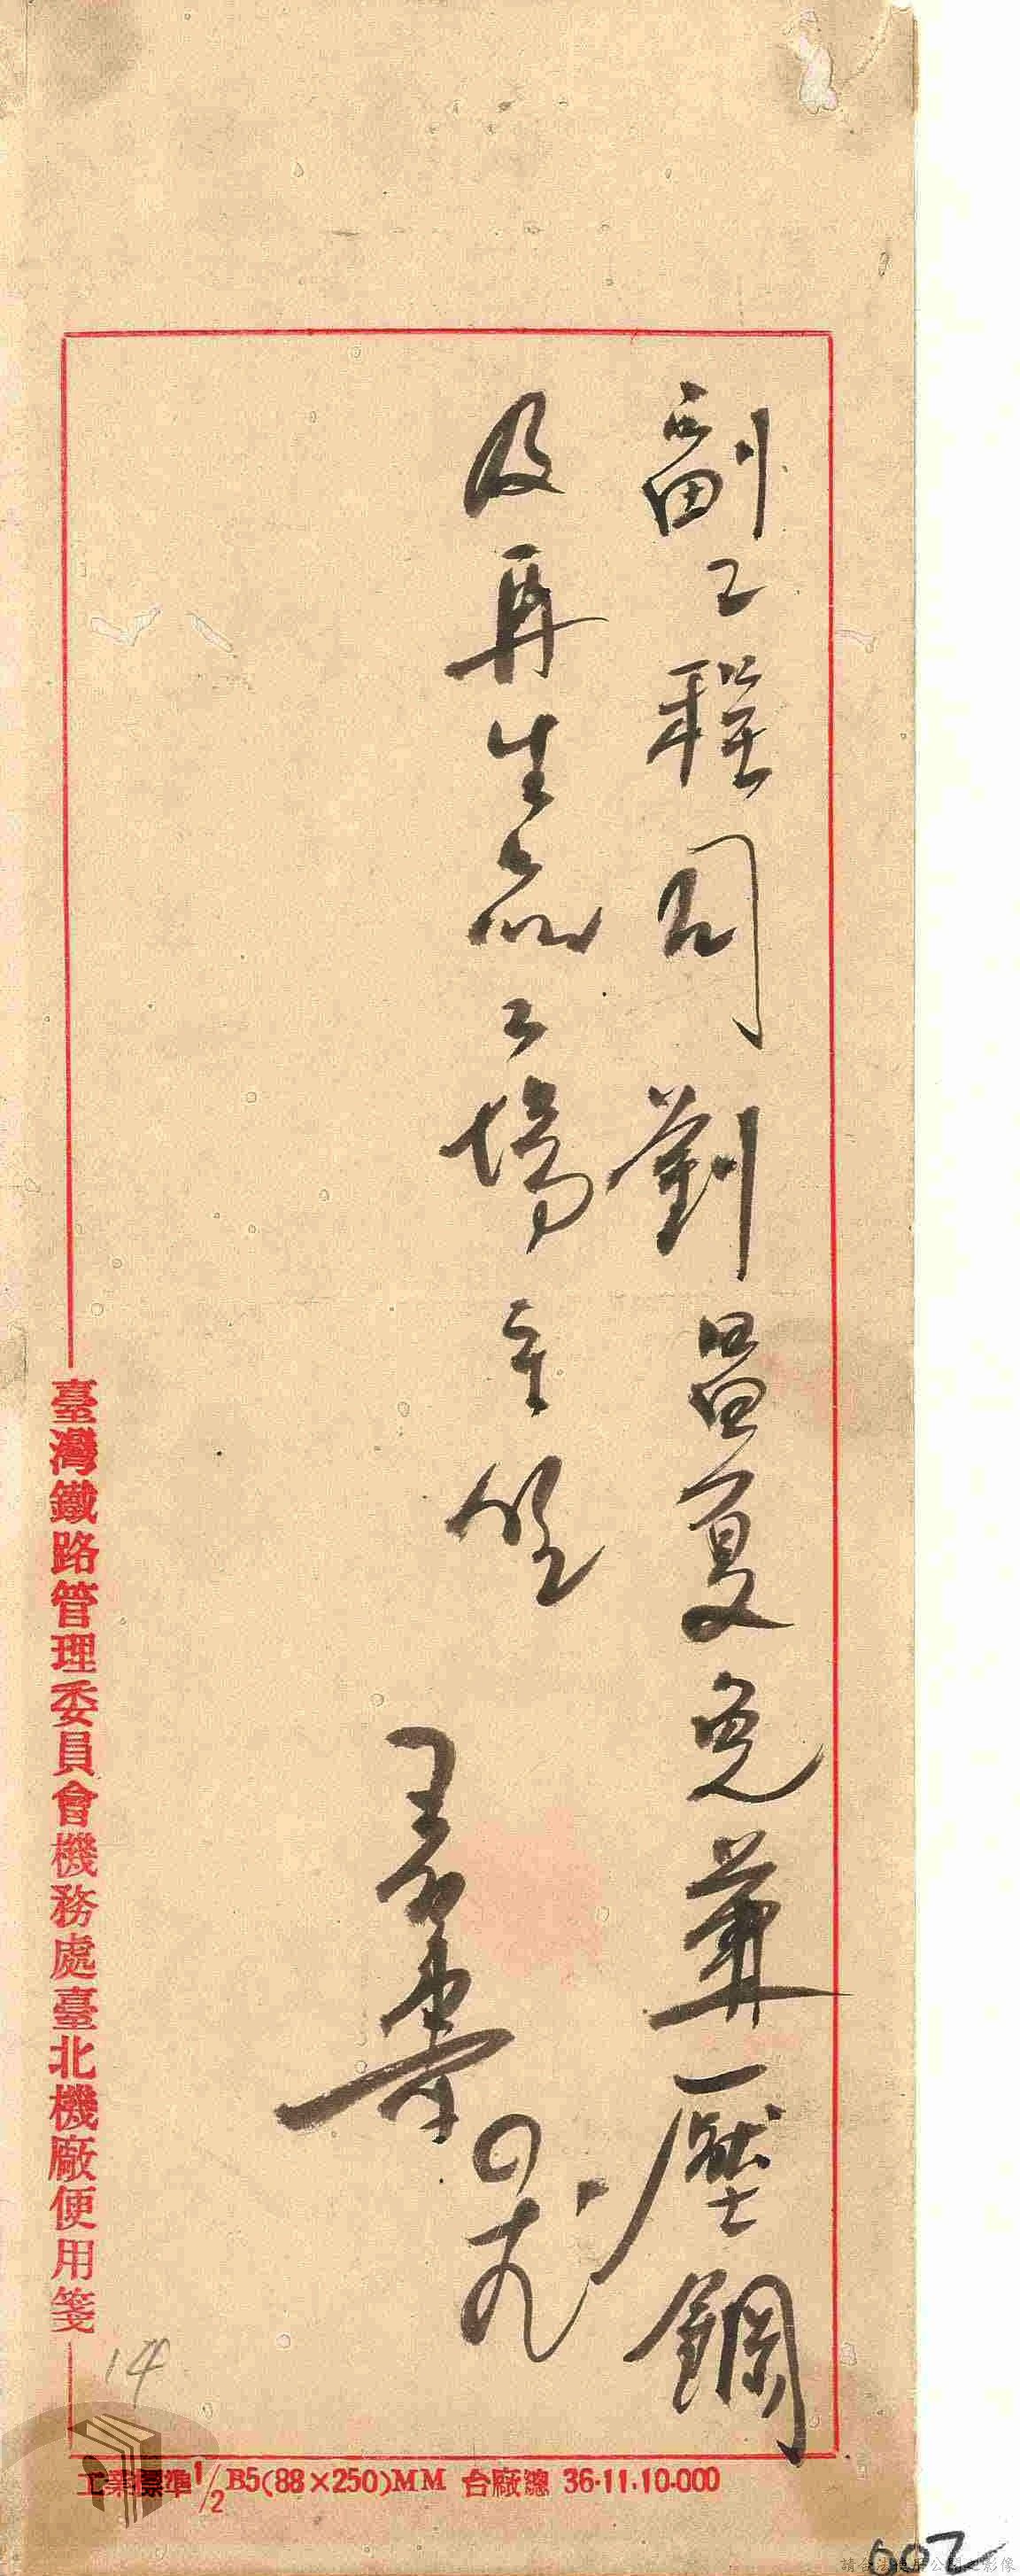 副工程司劉昌夏免兼壓鋼
及再生品工場主任
臺灣鐵路管理委員會機務處臺北機廠便用箋
14
工業標準1/2 B5(88×250)MM 台廠總 36·11·10·000
002